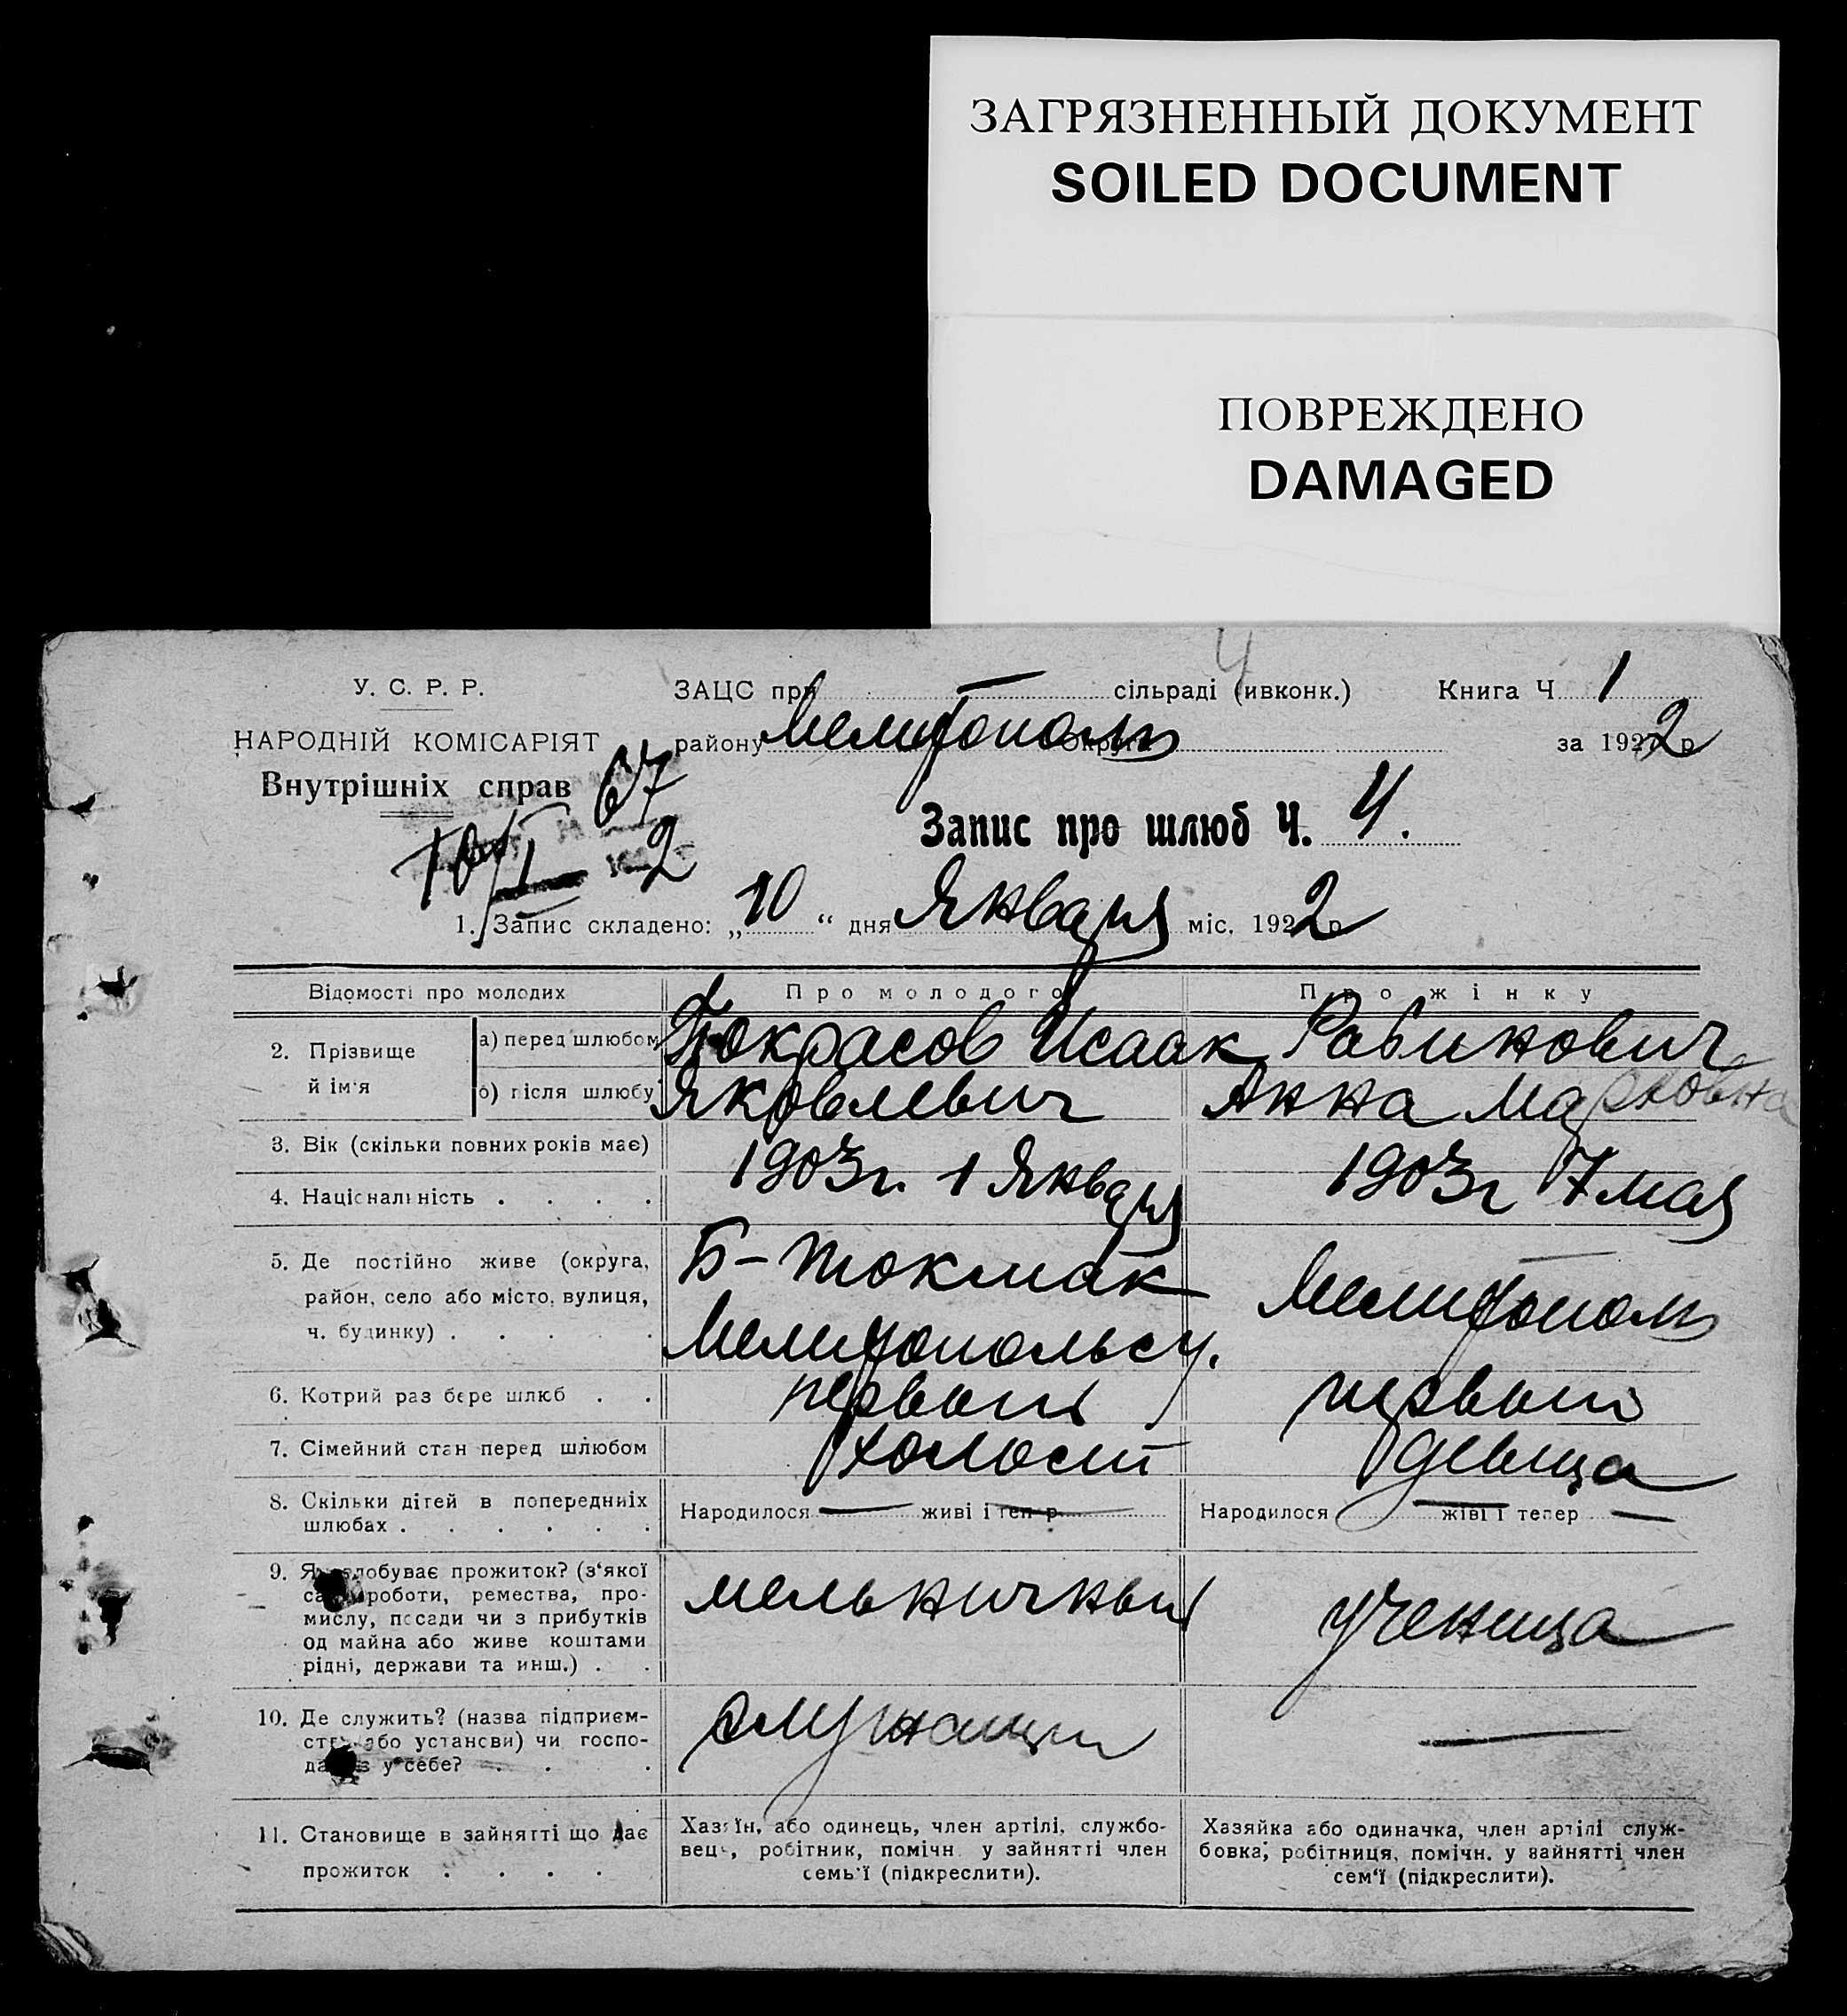 ЗАГРЯЗНЕННЫЙ ДОКУМЕНТ
SOILED DOCUMENT
ПОВРЕЖДЕНО
DAMAGED
4
У. С. Р. Р.
ЗАЦС при — сільраді (ивконк.) Книга Ч 1
НАРОДНІЙ КОМІСАРІЯТ
району Мелитополь округи за 1922 р.
Внутрішніх справ
67
Запис про шлюб Ч. 4.
10/I 2
1. Запис складено: „10“ дня Января міс. 1922 р.
Відомості про молодих Про молодого Про жінку
2. Прізвище й ім'я
а) перед шлюбом Покрасов Исаак Рабинович
б) після шлюбу Яковлевич Анна Марковна
3. Вік (скільки повних років має) 1903г. 1 Января 1903г 7 мая
4. Національність . . . .
5. Де постійно живе (округа, Б-Токмак
район, село або місто, вулиця, Мелитополь
ч. будинку) . . . . . Мелитопольс у.
6. Котрий раз бере шлюб . . первый первый
7. Сімейний стан перед шлюбом холост девица
8. Скільки дітей в попередніх
шлюбах . . . . . . Народилося — живі і тепер — Народилося — живі і тепер —
9. Як здобуває прожиток? (з'якої
роботи, ремества, про- мельничный
мислу, посади чи з прибутків ученица
од майна або живе коштами
рідні, держави та инш.) . .
10. Де служить? (назва підприєм- служащий
ства або установи) чи госпо- —
у себе? . . .
11. Становище в зайнятті що дає
прожиток . . . .
Хазяїн, або одинець, член артілі, службо-
вець, робітник, помічн. у зайнятті член
семь'ї (підкреслити).
Хазяйка або одиначка, член артілі служ-
бовка, робітниця, помічн. у зайнятті член
сем'ї (підкреслити).